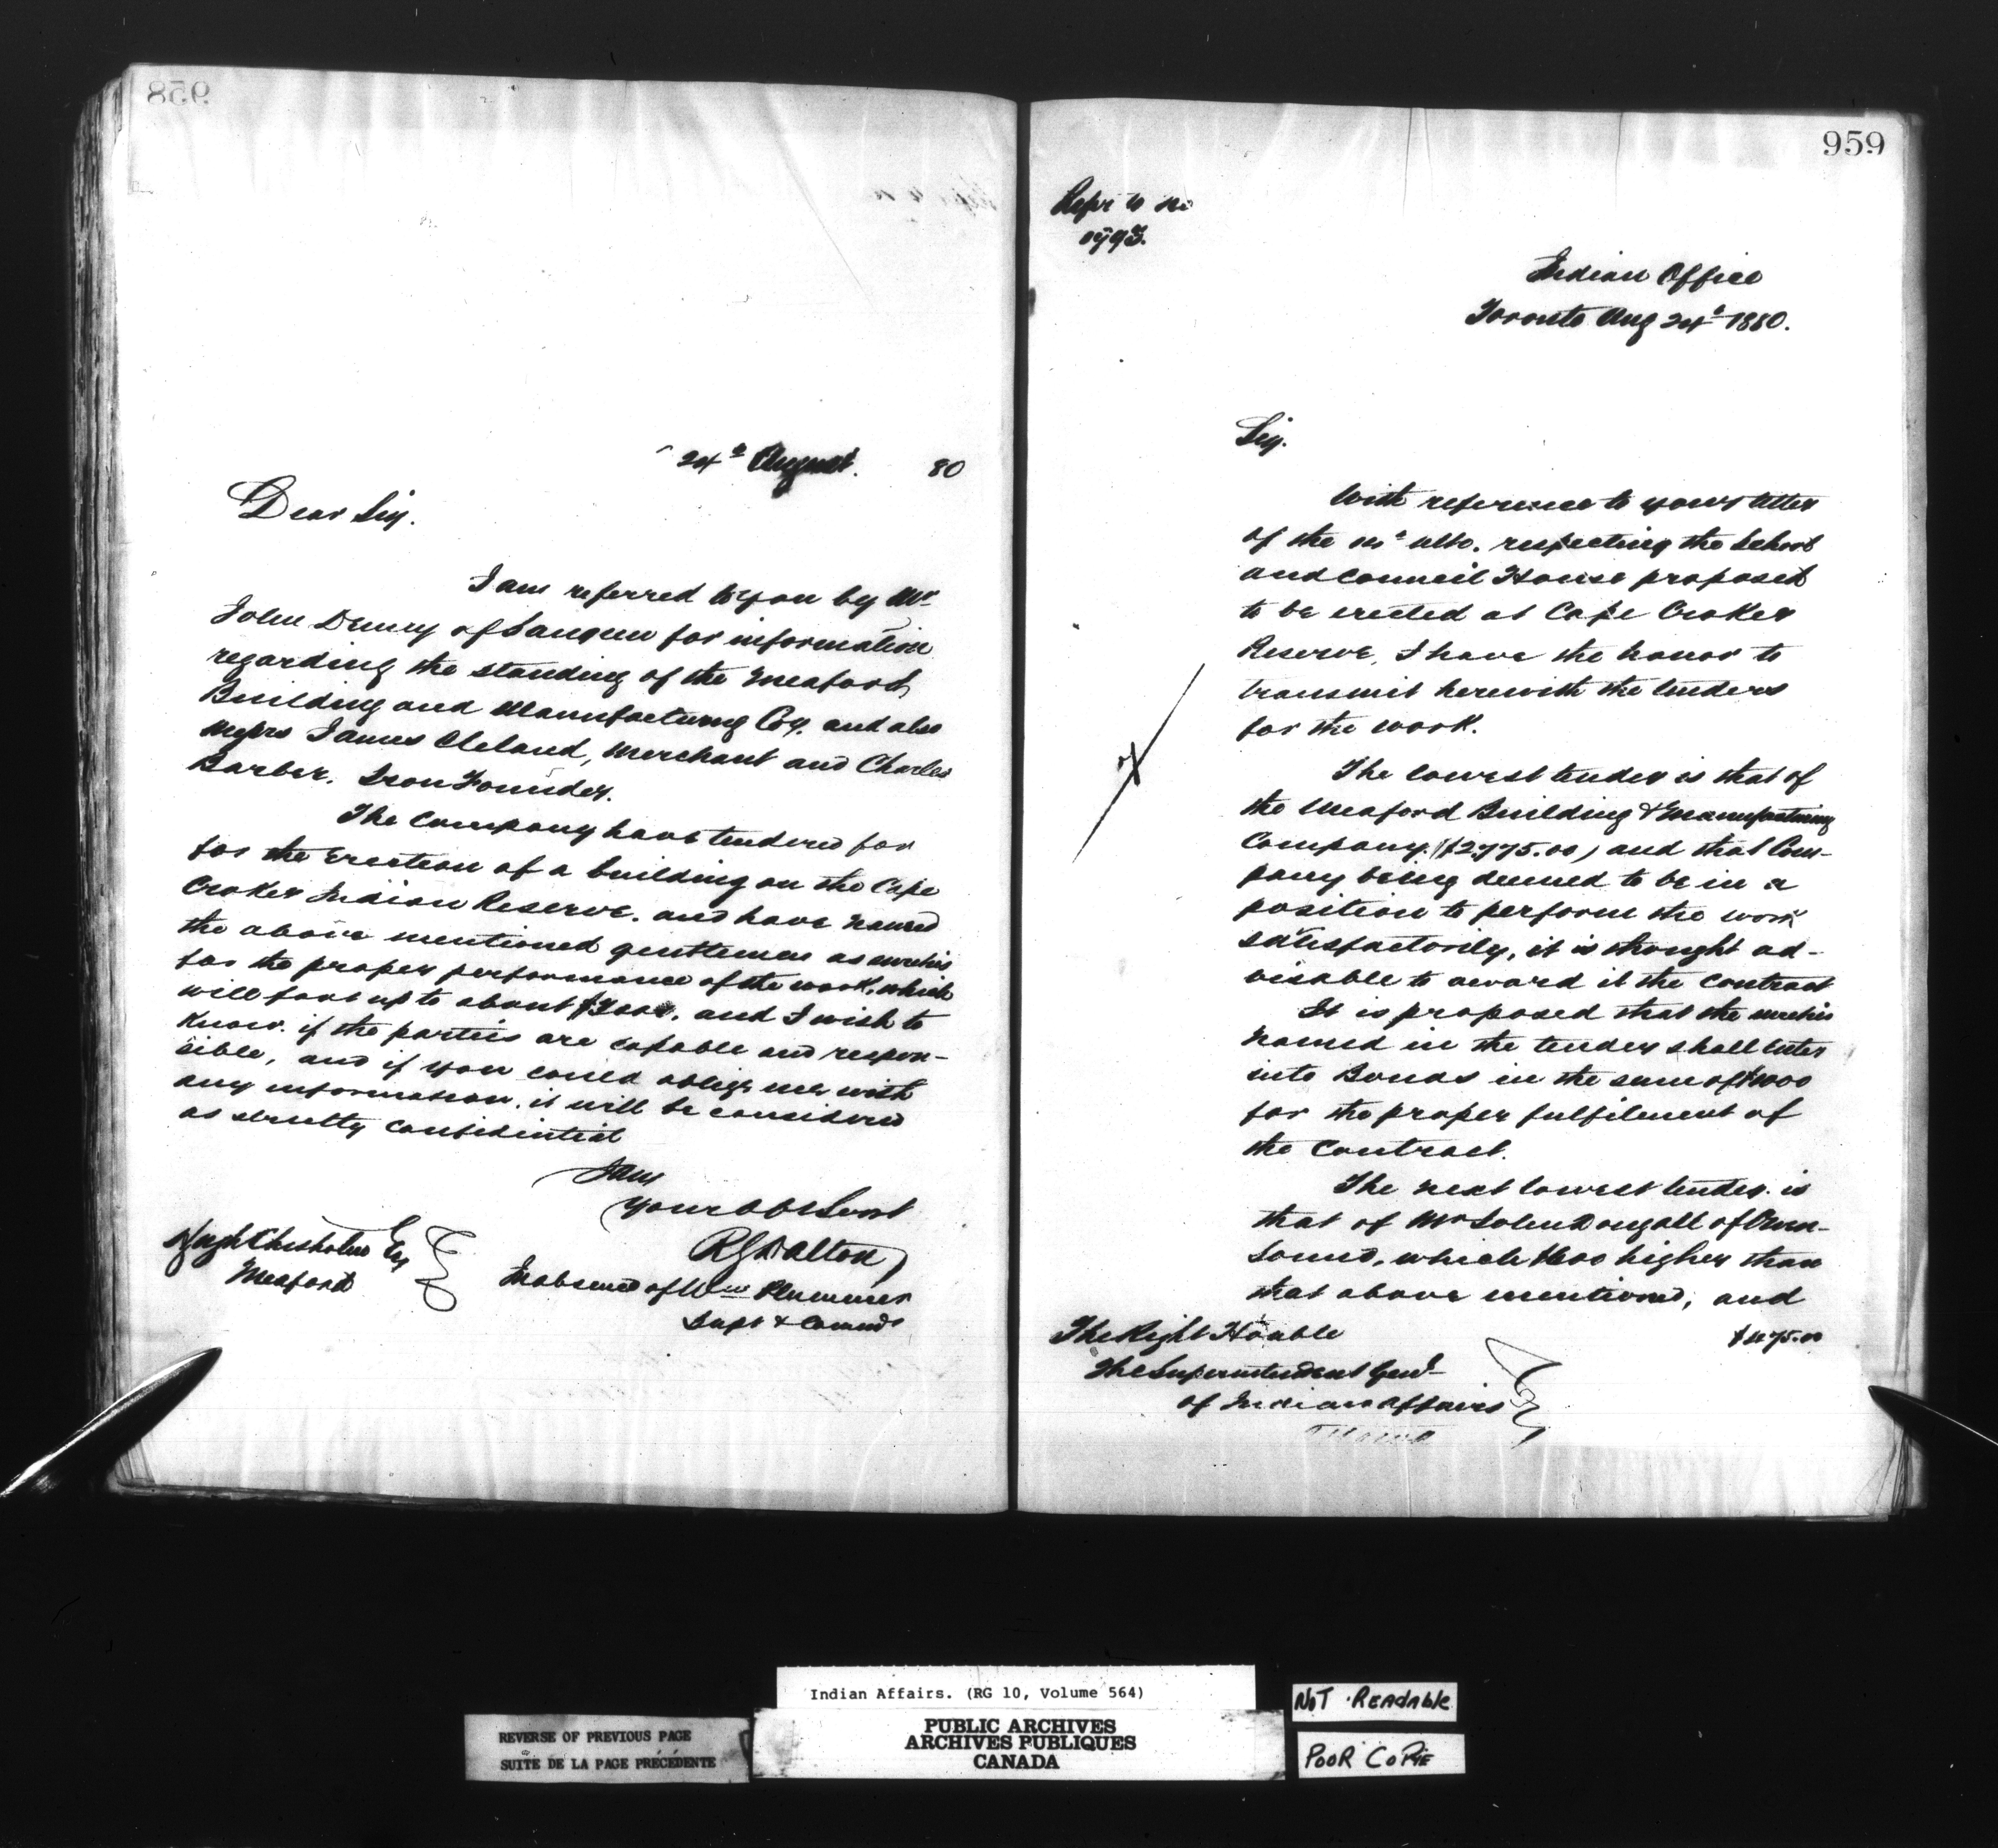 958
24th August. 80
Dear Sir.
I am referred to you by Mr
John Drury of Saugeen for information
regarding the standing of the Meaford
Building and Manufacturing Coy. and also
Messrs James Cleland, Merchant and Charles
Barber. Iron Founder.
The Company have tendered for
for the Erection of a building on the Cape
Croker Indian Reserve. and have named
the above mentioned gentlemen as sureties
for the proper performance of the work, which
will foot up to about $3000. and I wish to
know. if the parties are capable and respon-
sible, and if you could oblige me with
any information. it will be considered
as strictly confidential
I am
Your Obt Servt
Hugh Chisholm Esq
Meaford
R G Dalton
In absence of Wm Plummer
Supt & Commr
959
Refr to no
Indian Office
Toronto Aug 24th 1880.
Sir.
With reference to your letter
of the ulto. respecting the School
and Council House proposed
to be erected at Cape Croker
Reserve, I have the honor to
transmit herewith the tenders
for the work.
The lowest tender is that of
the Meaford Building & Manufacturing
Company. ($2,775.00) and that Com-
pany being deemed to be in a
position to perform the work
satisfactorily, it is thought ad-
visable to award it the contract
It is proposed that the sureties
named in the tender shall enter
into Bonds in the sum of $1000
for the proper fulfilment of
the contract.
The next lowest tender. is
that of Mr John Dougall of Owen-
Sound, which higher than
that above mentioned, and
$475.00
The Right Honble
The Superintendent Genl
of Indian Affairs
Ottawa
Indian Affairs. (RG 10, Volume 564)
PUBLIC ARCHIVES
ARCHIVES PUBLIQUES
CANADA
REVERSE OF PREVIOUS PAGE
SUITE DE LA PAGE PRÉCÉDENTE
NOT READABLE
POOR COPIE